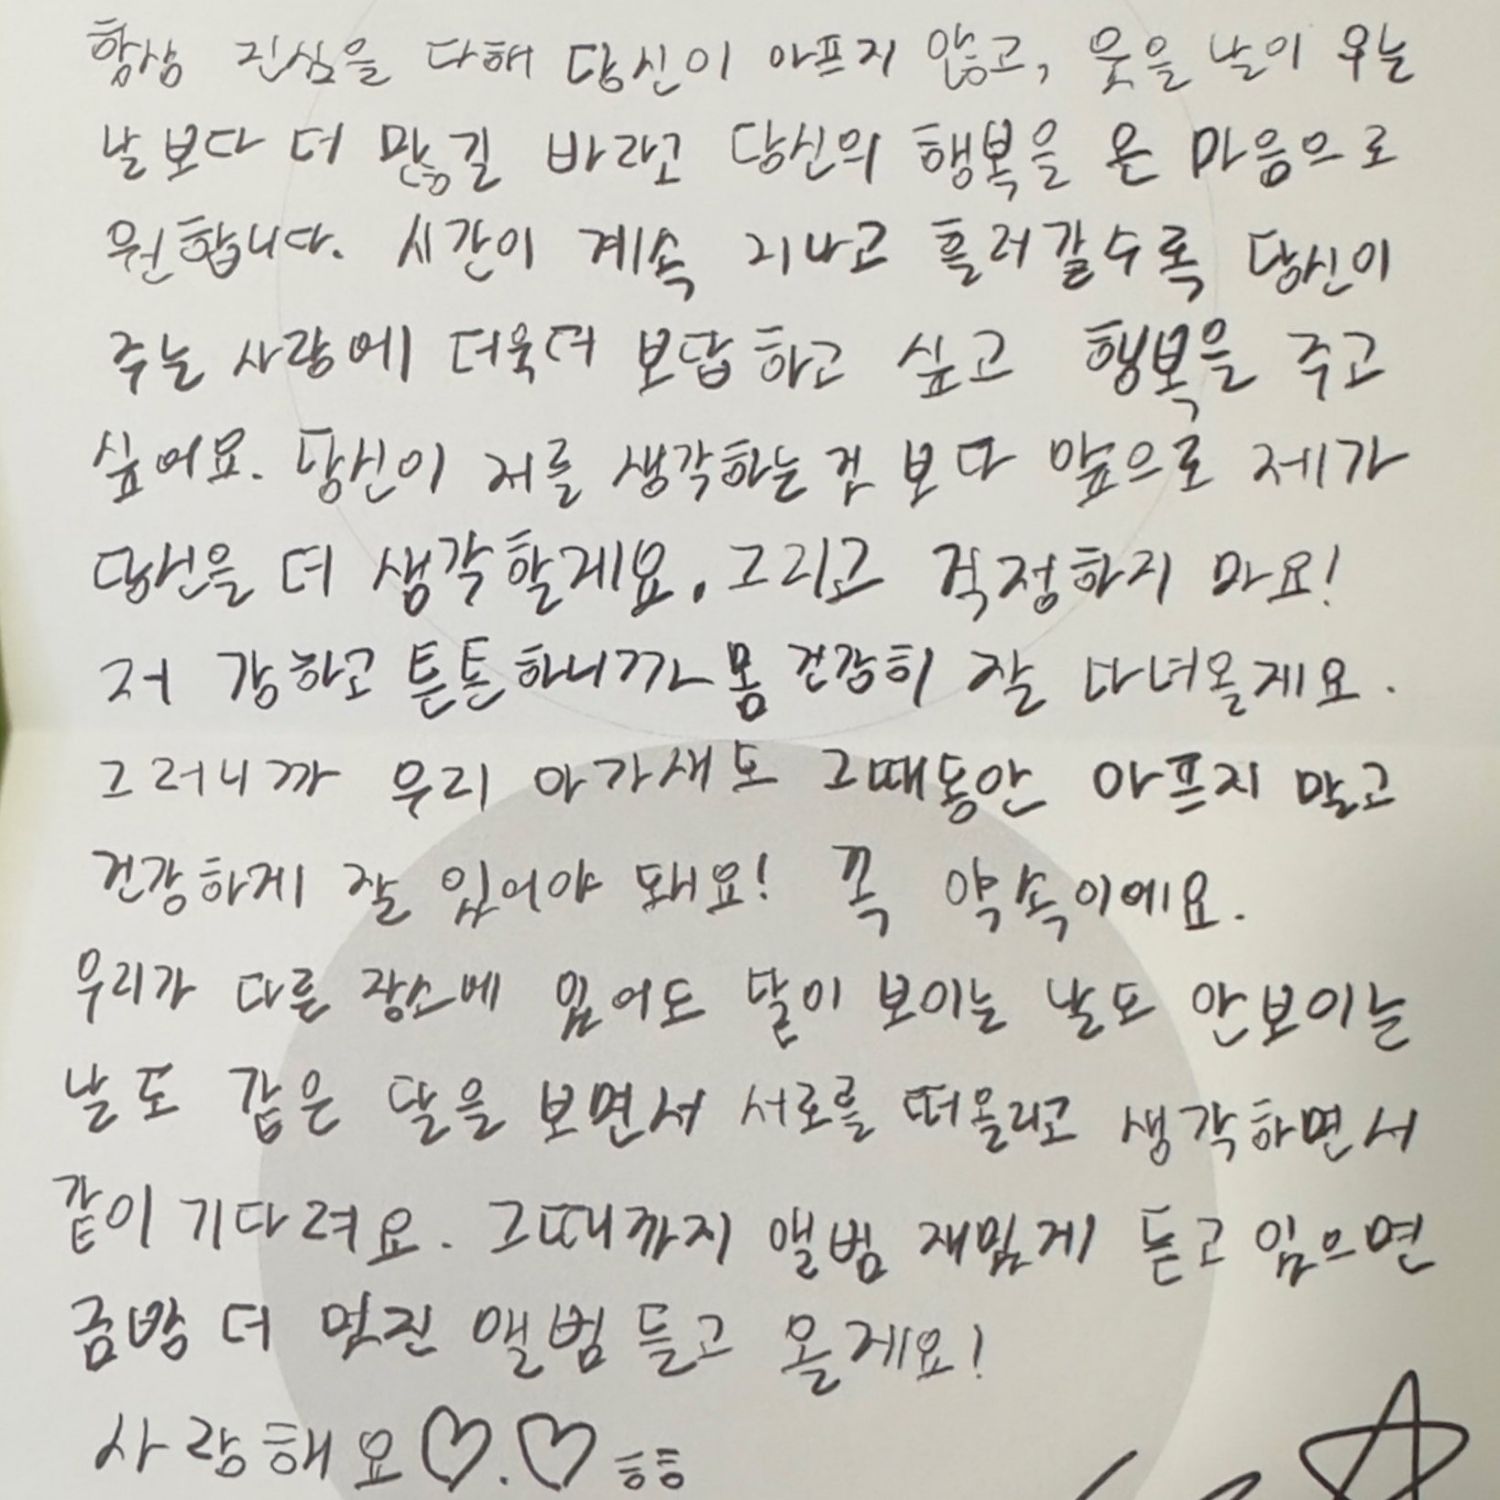 항상 진심을 다해 당신이 아프지 않고, 웃을 날이 우는
날 보다 더 많길 바라고 당신의 행복을 온 마음으로
원합니다. 시간이 계속 지나고 흘러갈수록 당신이
주는 사랑에 더욱더 보답하고 싶고 행복을 주고
싶어요. 당신이 저를 생각하는 건 보다 앞으로 제가
당신을 더 생각할게요. 그리고 걱정하지 마요!
저 강하고 튼튼하니까 몸 건강히 잘 다녀올게요.
그러니까 우리 아가새도 그때동안 아프지 말고
건강하게 잘 있어야 돼요! 꼭 약속이에요.
우리가 다른 장소에 있어도 달이 보이는 날도 안보이는
날도 같은 달을 보면서 서로를 떠올리고 생각하면서
같이 기다려요. 그때까지 앨범 재밌게 듣고 있으면
금방 더 멋진 앨범 들고 올게요!
사랑해요♡.♡ ㅎㅎ